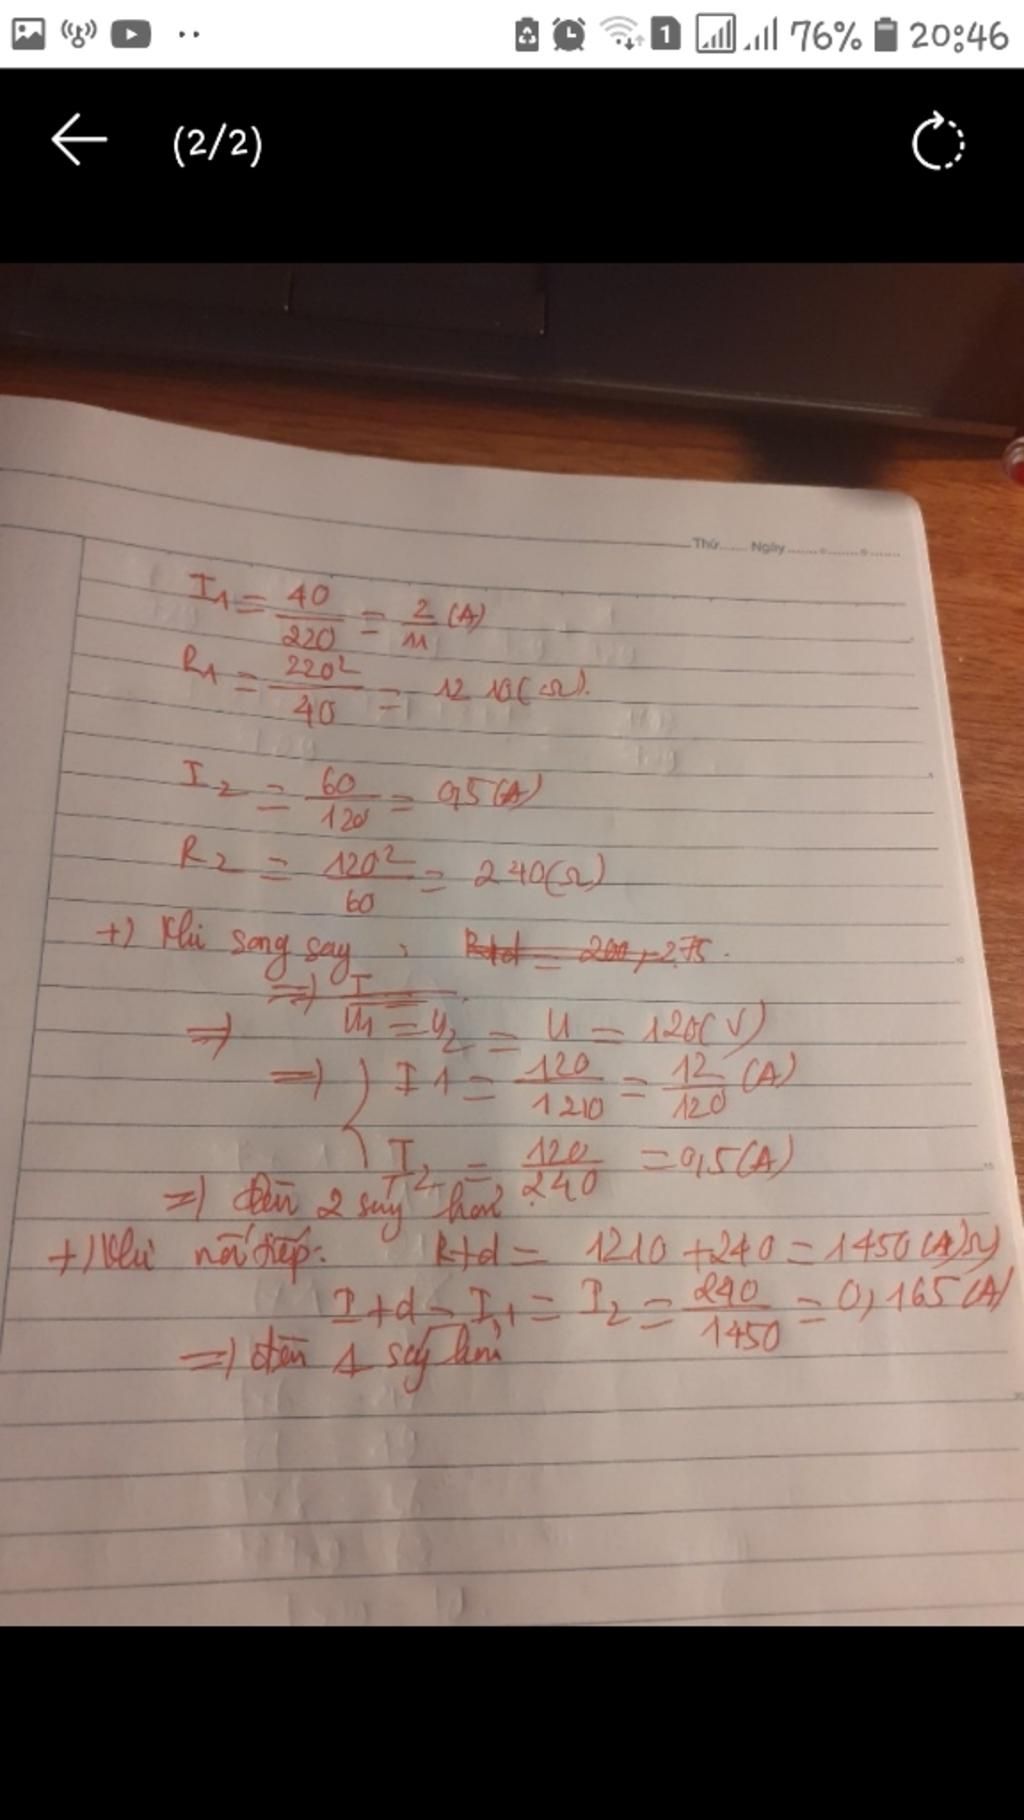 1 76% 20:46
(2/2)
Thứ...... Ngày...............
I1 = 40/220 = 2/11 (A)
R1 = 220²/40 = 1210(Ω).
I2 = 60/120 = 0,5(A)
R2 = 120²/60 = 240(Ω)
+) Khi song say :
=> I
=> U1 = U2 = U = 120(V)
=> I1 = 120/1210 = 12/120 (A)
I2 = 120/240 = 0,5(A)
=> đèn 2 sáy hơn
+) Khi nối tiếp: R+d = 1210 + 240 = 1450 (A)Ω)
I+d = I1 = I2 = 240/1450 = 0,165(A)
=> đèn 1 sáy hơn